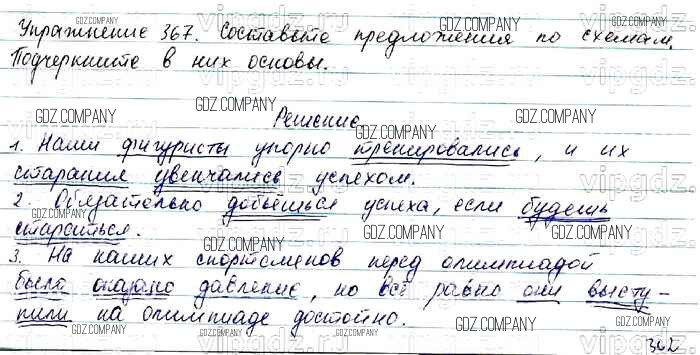 Упражнение 367. Составьте предложения по схемам.
Подчеркните в них основы.
Решение
1. Наши фигуристы упорно тренировались, и их
старания увенчались успехом.
2. Обязательно добьёшься успеха, если будешь
стараться.
3. На наших спортсменов перед олимпиадой
было оказано давление, но всё равно они высту-
пили на олимпиаде достойно.
362
GDZ.COMPANY
vipgdz.ru